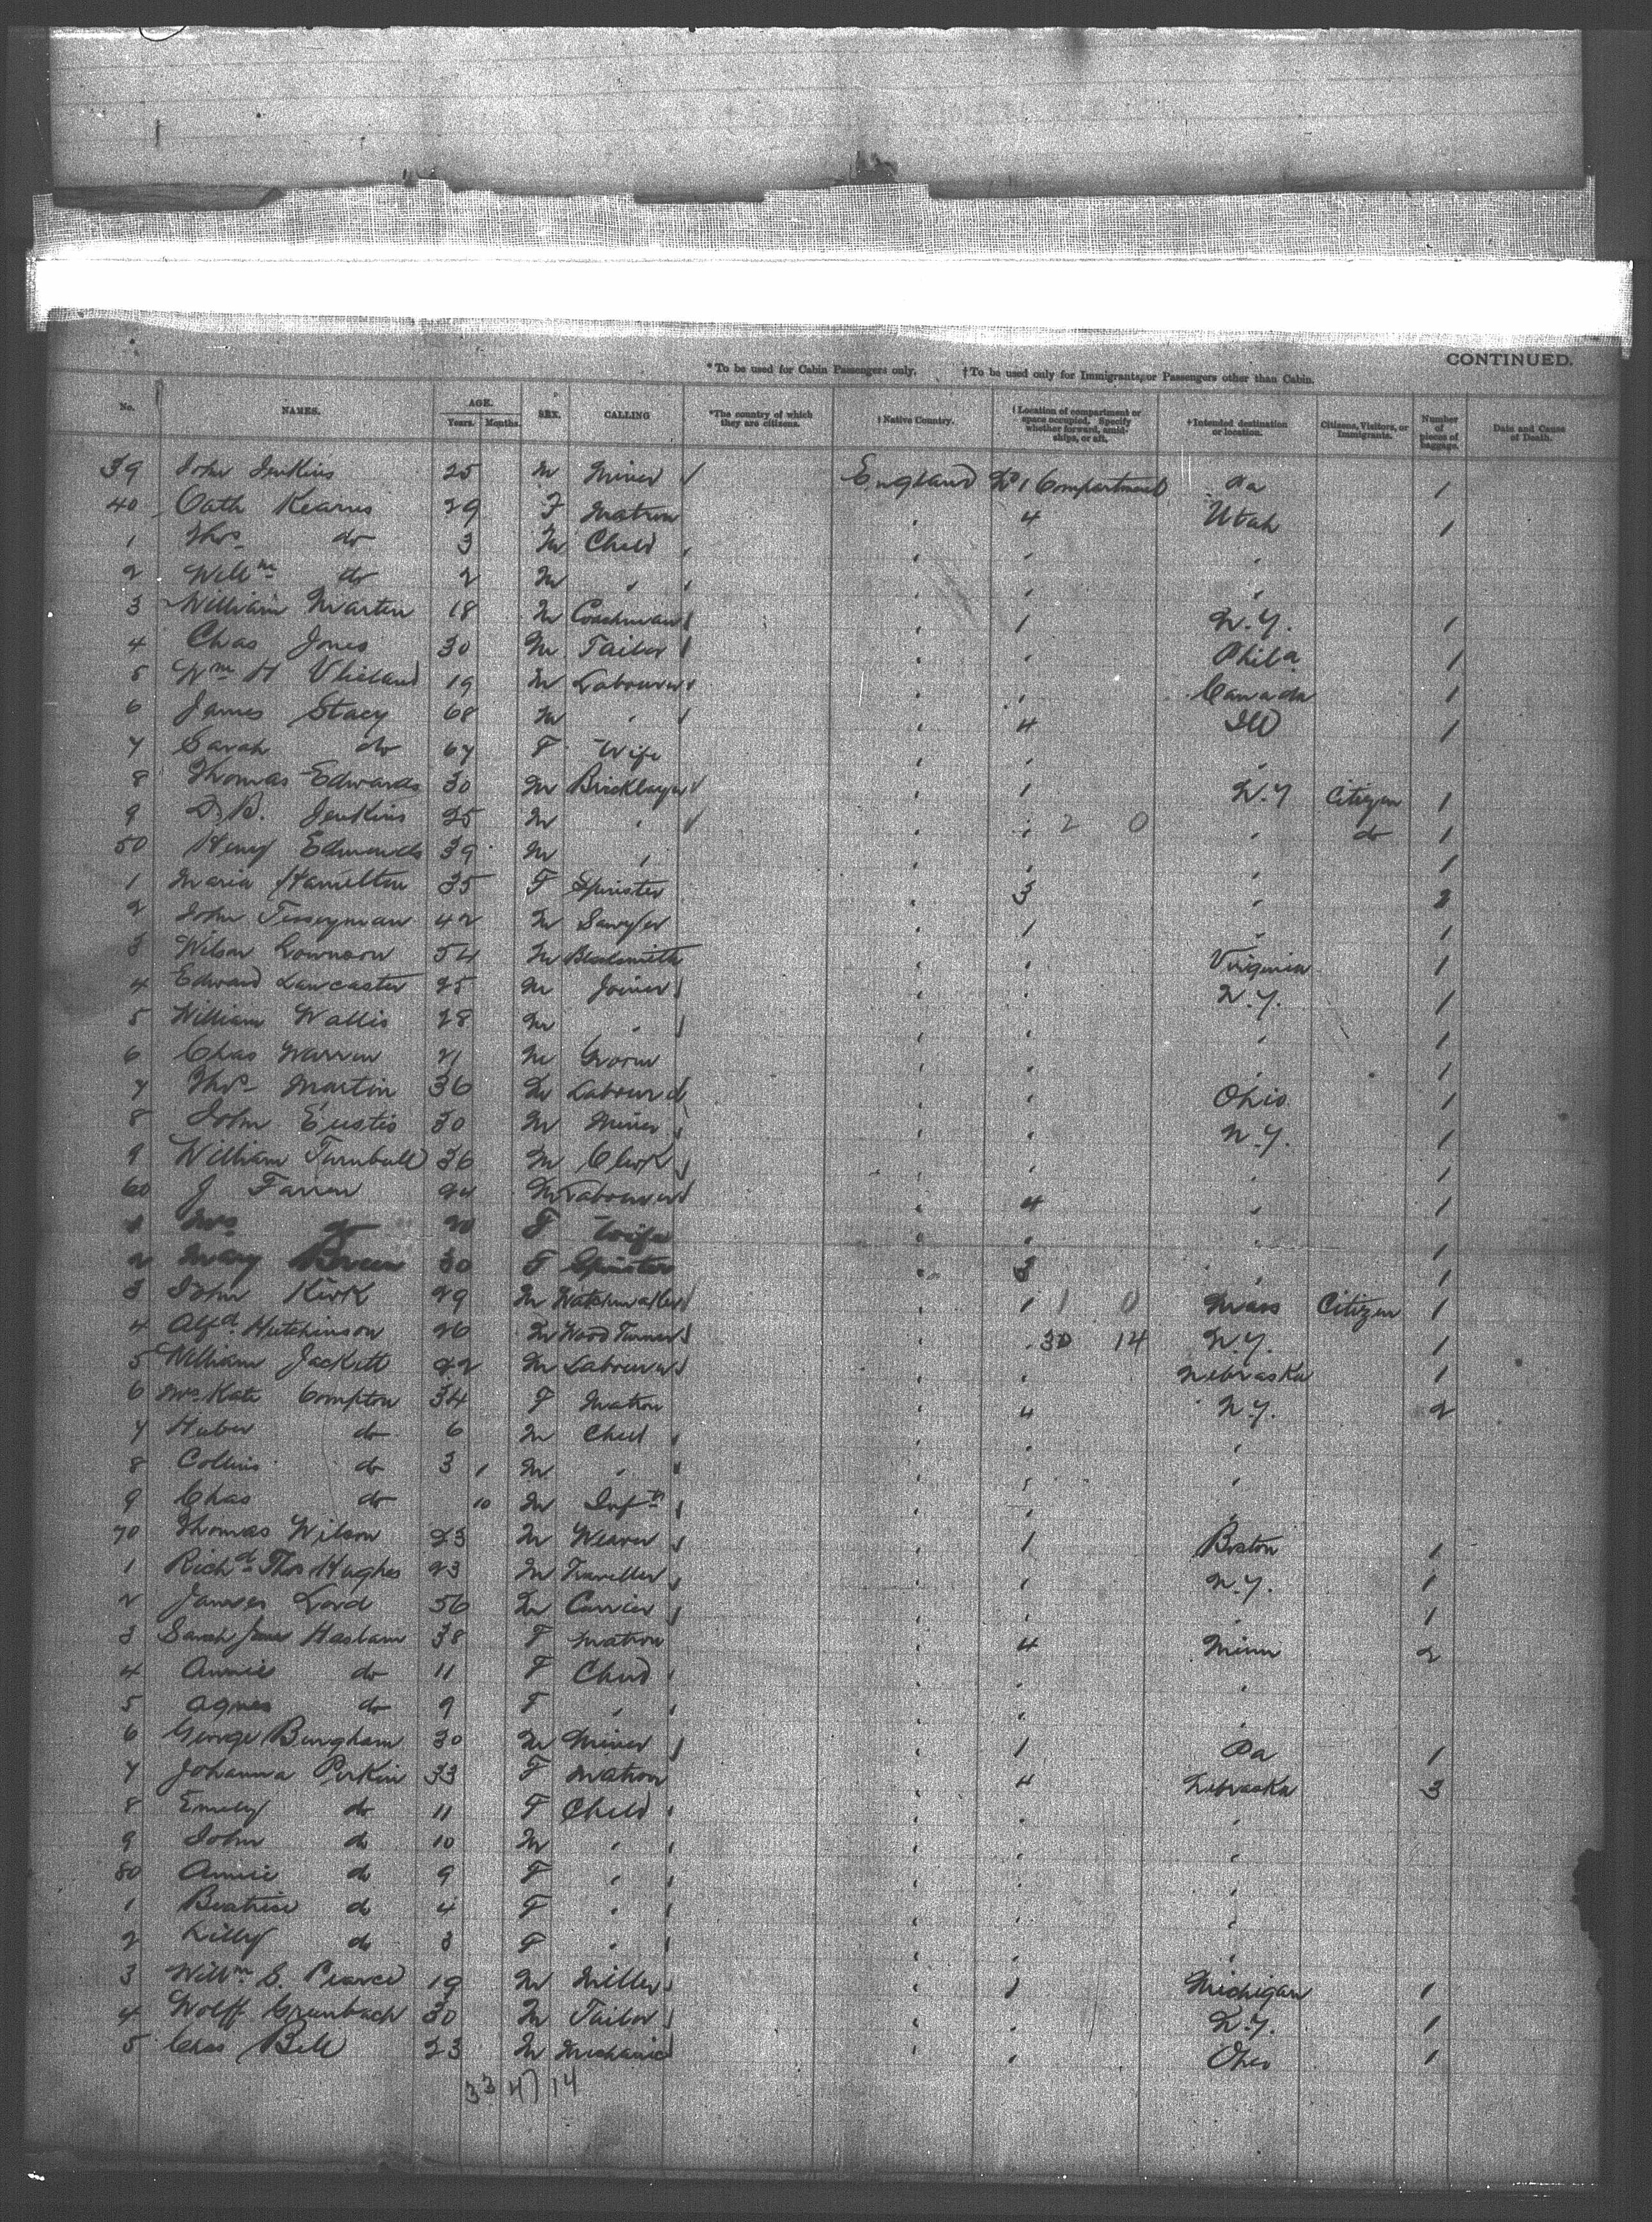 CONTINUED.
*To be used for Cabin Passengers only. †To be used only for Immigrants, or Passengers other than Cabin.
No. NAMES. AGE. Years. Months. SEX. CALLING *The country of which they are citizens. †Native Country. †Location of compartment or space occupied. Specify whether forward, amidships, or aft. †Intended destination or location. Citizens, Visitors, or Immigrants. Number of pieces of baggage. Date and Cause of Death.
39 John Jenkins 25 M Miner England No 1 Compartment Pa 1
40 Cath Kearns 29 F Matron " 4 Utah 1
1 Thos do 3 M Child " " "
2 Willm do 2 M " " " "
3 William Martin 18 M Coachman " 1 N.Y. 1
4 Chas Jones 30 M Tailor " " Phila 1
5 Wm H Vlieland 19 M Labourer " " Canada 1
6 James Stacy 68 M " " 4 Ill 1
7 Sarah do 67 F Wife " " "
8 Thomas Edwards 30 M Bricklayer " 1 N.Y Citizen 1
9 D.B. Jenkins 25 M " " " 2 0 " do 1
50 Henry Edmunds 39 M " " " " 1
1 Maria Hamilton 35 F Spinster " 3 " 2
2 John Tesseyman 42 M Sawyer " 1 " 1
3 Wilson Lownson 54 M Blacksmith " " Virginia 1
4 Edward Lancaster 25 M Joiner " " N.Y. 1
5 William Wallis 28 M " " " " 1
6 Chas Warren 21 M Groom " " " 1
7 Thos Martin 36 M Labourer " " Ohio 1
8 John Eustis 30 M Miner " " N.Y. 1
9 William Turnbull 36 M Clerk " " " 1
60 J Farren 24 M Labourer " 4 " 1
1 Mrs do 20 F Wife " " " 1
2 Mary Breen 30 F Spinster " 3 " 1
3 John Kirk 29 M Watchmaker " 1 1 0 Mass Citizen 1
4 Alfd Hutchinson 26 M Wood Turner " " 30 14 N.Y. 1
5 William Jackett 22 M Labourer " " Nebraska 1
6 Mrs Kate Compton 34 F Matron " 4 N.Y. 2
7 Huber do 6 M Child " " "
8 Collins do 3 1 M " " " "
9 Chas do 10 M Inft " " "
70 Thomas Wilson 23 M Weaver " 1 Boston 1
1 Richd Thos Hughes 23 M Traveller " " N.Y. 1
2 James Lord 56 M Carrier " " " 1
3 Sarah Jane Haslam 38 F Matron " 4 Minn 2
4 Annie do 11 F Child " " "
5 Agnes do 9 F " " " "
6 George Bingham 30 M Miner " 1 Pa 1
7 Johanna Perkin 33 F Matron " 4 Nebraska 3
8 Emily do 11 F Child " " "
9 John do 10 M " " " "
80 Annie do 9 F " " " "
1 Beatrice do 4 F " " " "
2 Lilly do 3 F " " " "
3 Willm S. Pearce 19 M Miller " 1 Michigan 1
4 Wolff Grunbach 30 M Tailor " " N.Y. 1
5 Chas Bell 23 M Mechanic " " Ohio 1
33 47 14